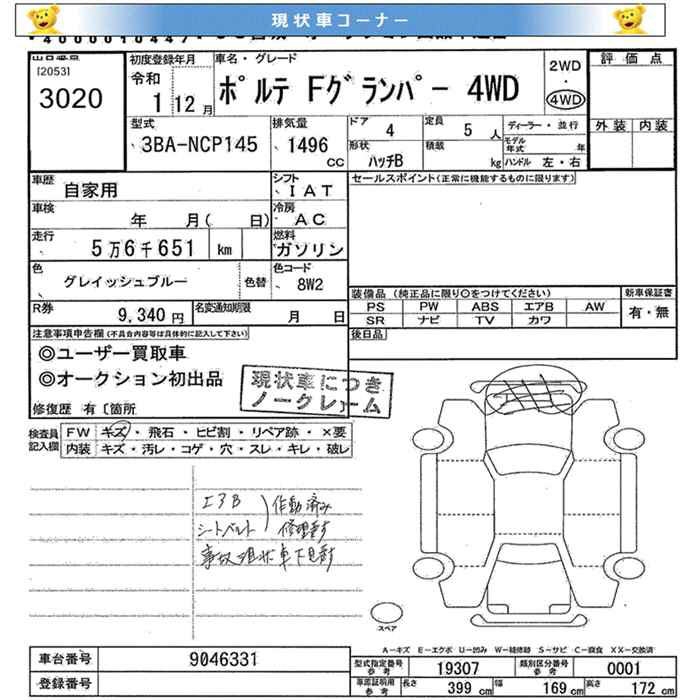 現状車コーナー
出品番号
[2053]
3020
初度登録年月
令和
1 12月
車名・グレード
ポルテ Fグランパー 4WD
2WD
・
4WD
評価点
外装 内装
型式
3BA-NCP145
排気量
1496
cc
ドア
4
形状
ハッチB
定員
5 人
積載
kg
ディーラー・並行
モデル年式 年
ハンドル 左・右
車歴
自家用
シフト
IAT
車検
年 月( 日)
冷房
AC
走行
5万6千651 km
燃料
ガソリン
色
グレイッシュブルー
色替
色コード
8W2
R券
9,340円
名変通知期限
月 日
セールスポイント(正常に機能するものに限ります)
装備品(純正品に限り○をつけてください)
PS PW ABS エアB AW
SR ナビ TV カワ
新車保証書
有・無
後日品
注意事項申告欄(不具合内容等は具体的に記入して下さい)
◎ユーザー買取車
◎オークション初出品
修復歴 有〔箇所
現状車につき
ノークレーム
検査員
記入欄
FW キズ・飛石・ヒビ割・リペア跡・×要
内装 キズ・汚レ・コゲ・穴・スレ・キレ・破レ
エアB
シートベルト
作動済み
修理要す
事故現状車下見要す
スペア
A-キズ E-エクボ U-凹み W-補修跡 S-サビ C-腐食 XX-交換済
車台番号
9046331
登録番号
型式指定番号
参考
19307
類別区分番号
参考
0001
車庫証明用
参考
長さ
399 cm
幅
169 cm
高さ
172 cm